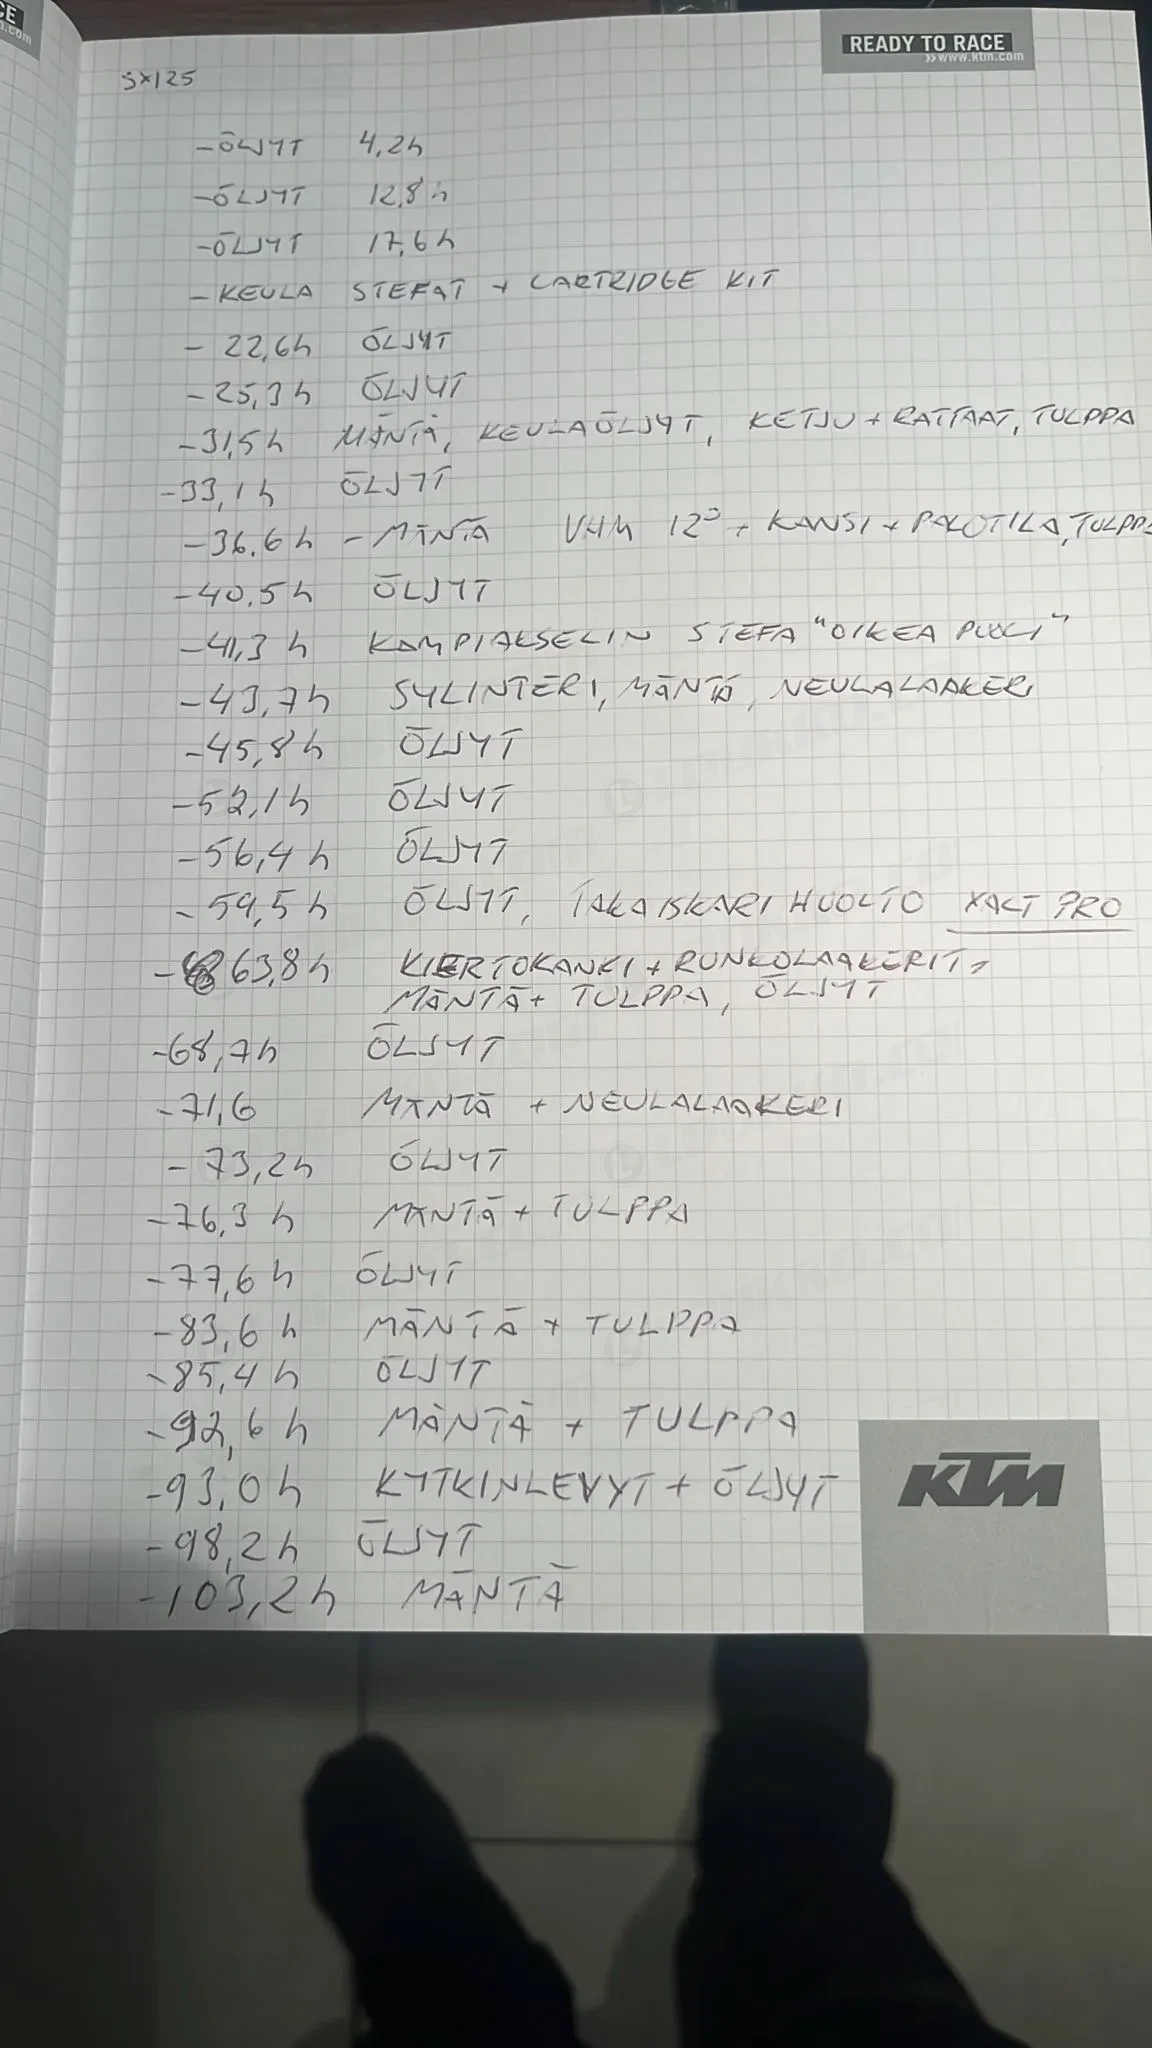 CE
n.com
READY TO RACE
»www.ktm.com
SX125
-ÖLJYT 4,2h
-ÖLJYT 12,8h
-ÖLJYT 17,6h
-KEULA STEFAT + CARTRIDGE KIT
- 22,6h ÖLJYT
-25,3h ÖLJYT
-31,5h MÄNTÄ, KEULAÖLJYT, KETJU + RATTAAT, TULPPA
-33,1h ÖLJYT
-36.6h - MÄNTÄ VHM 12° + KANSI + PALOTILA, TULPPA
-40.5h ÖLJYT
-41,3h KAMPIAKSELIN STEFA "OIKEA PUOLI"
-43,7h SYLINTERI, MÄNTÄ, NEULALAAKERI
-45,8h ÖLJYT
-52,1h ÖLJYT
-56,4h ÖLJYT
-59,5h ÖLJYT, TAKAISKARI HUOLTO XACT PRO
- 63,8h KIERTOKANKI + RUNKOLAAKERIT,
MÄNTÄ + TULPPA, ÖLJYT
-68,7h ÖLJYT
-71,6 MÄNTÄ + NEULALAAKERI
- 73,2h ÖLJYT
-76,3h MÄNTÄ + TULPPA
-77,6h ÖLJYT
-83,6h MÄNTÄ + TULPPA
-85,4h ÖLJYT
-92,6h MÄNTÄ + TULPPA
-93,0h KYTKINLEVYT + ÖLJYT
KTM
-98,2h ÖLJYT
-103,2h MÄNTÄ